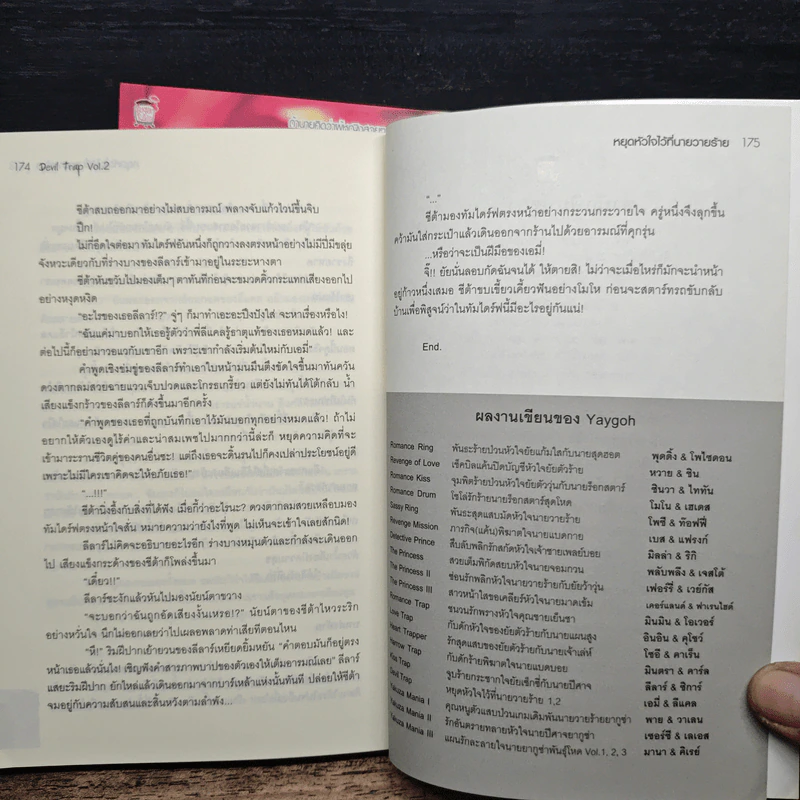 174 Devil Trap Vol.2
ซีต้าสบถออกมาอย่างไม่สบอารมณ์ พลางจับแก้วไวน์ขึ้นจิบ
ปึก!
ไม่กี่อึดใจต่อมาทัมไดร์ฟอันหนึ่งก็ถูกวางลงตรงหน้าอย่างไม่มีปี่มีขลุ่ย
จังหวะเดียวกับที่ร่างบางของลีลาร์เข้ามาอยู่ในระยะหางตา
ซีต้าหันขวับไปมองเต็มๆ ตาทันทีก่อนจะขมวดคิ้วกระแทกเสียงออกไป
อย่างหงุดหงิด
“อะไรของเธอลีลาร์!?” จู่ๆ ก็มาทำเอะอะปึงปังใส่ จะหาเรื่องหรือไง!
“ฉันแค่มาบอกให้เธอรู้ตัวว่าพี่ลีแคลรู้ธาตุแท้ของเธอหมดแล้ว! และ
ต่อไปนี้ก็อย่ามาวอแวกับเขาอีก เพราะเขากำลังเริ่มต้นใหม่กับเอมี่”
คำพูดเชิงข่มขู่ของลีลาร์ทำเอาใบหน้ามนมึนตึงขัดใจขึ้นมาทันควัน
ดวงตากลมสวยฉายแววเจ็บปวดและโกรธเกรี้ยว แต่ยังไม่ทันได้โต้กลับ น้ำ
เสียงแข็งกร้าวของลีลาร์ก็ดังขึ้นมาอีกครั้ง
“คำพูดของเธอที่ถูกบันทึกเอาไว้มันบอกทุกอย่างหมดแล้ว! ถ้าไม่
อยากให้ตัวเองดูไร้ค่าและน่าสมเพชไปมากกว่านี้ล่ะก็ หยุดความคิดที่จะ
เข้ามาระรานชีวิตคู่ของคนอื่นซะ! แต่ถึงเธอจะดิ้นรนไปก็คงเปล่าประโยชน์อยู่ดี
เพราะไม่มีใครเขาคิดจะให้อภัยเธอ!”
“...!!!”
ซีต้านิ่งอึ้งกับสิ่งที่ได้ฟัง เมื่อกี้ว่าอะไรนะ? ดวงตากลมสวยเหลือบมอง
ทัมไดร์ฟตรงหน้าใจสั่น หมายความว่ายังไงที่พูด ไม่เห็นจะเข้าใจเลยสักนิด!
ลีลาร์ไม่คิดจะอธิบายอะไรอีก ร่างบางหมุนตัวและกำลังจะเดินออก
ไป เสียงแข็งกระด้างของซีต้าก็โพล่งขึ้นมา
“เดี๋ยว!!”
ลีลาร์ชะงักแล้วหันไปมองนัยน์ตาขวาง
“จะบอกว่าฉันถูกอัดเสียงงั้นเหรอ!?” นัยน์ตาของซีต้าไหวระริก
อย่างหวั่นใจ นึกไม่ออกเลยว่าไปเผลอพลาดท่าเสียทีตอนไหน
“หึ!” ริมฝีปากเย้ายวนของลีลาร์เหยียดยิ้มหยัน “คำตอบมันก็อยู่ตรง
หน้าเธอแล้วนั่นไง! เชิญฟังคำสารภาพบาปของตัวเองให้เต็มอารมณ์เลย” ลีลาร์
แสยะริมฝีปาก ยักไหล่แล้วเดินออกมาจากบาร์เหล้าแห่งนั้นทันที ปล่อยให้ซีต้า
จมอยู่กับความสับสนและสิ้นหวังตามลำพัง...
หยุดหัวใจไว้ที่นายวายร้าย 175
“...”
ซีต้ามองทัมไดร์ฟตรงหน้าอย่างกระวนกระวายใจ ครู่หนึ่งจึงลุกขึ้น
คว้ามันใส่กระเป๋าแล้วเดินออกจากร้านไปด้วยอารมณ์ที่คุกรุ่น
...หรือว่าจะเป็นฝีมือของเอมี่!
จี๊!! ยัยนั่นลอบกัดฉันจนได้ ให้ตายสิ! ไม่ว่าจะเมื่อไหร่ก็มักจะนำหน้า
อยู่ก้าวหนึ่งเสมอ ซีต้าขบเขี้ยวเคี้ยวฟันอย่างโมโห ก่อนจะสตาร์ทรถขับกลับ
บ้านเพื่อพิสูจน์ว่าในทัมไดร์ฟนี้มีอะไรอยู่กันแน่!
End.
ผลงานเขียนของ Yaygoh
Romance Ring พันธะร้ายป่วนหัวใจยัยแก้มใสกับนายสุดฮอต พุดดิ้ง & โพไซดอน
Revenge of Love เช็คบิลแค้นปิดบัญชีหัวใจยัยตัวร้าย หวาย & ชิน
Romance Kiss จุมพิตร้ายป่วนหัวใจยัยตัววุ่นกับนายร็อกสตาร์ ชินวา & ไททัน
Romance Drum โซโล่รักร้ายนายร็อกสตาร์สุดโหด โมโน & เฮเดส
Sassy Ring พันธะสุดแสบมัดหัวใจนายวายร้าย โพซี & ท๊อฟฟี่
Revenge Mission ภารกิจ(แค้น)พิฆาตใจนายแบดกาย เบส & แฟรงก์
Detective Prince สืบลับพลิกรักสกัดหัวใจเจ้าชายเพลย์บอย มิลล่า & ริกิ
The Princess สวยเต็มพิกัดสยบหัวใจนายจอมกวน พลับพลึง & เจสโต้
The Princess II ซ่อนรักพลิกหัวใจนายวายร้ายกับยัยว้าวุ่น เฟอร์รี่ & เวย์กัส
The Princess III สาวหน้าใสขอเคลียร์หัวใจนายมาดเข้ม เคอร์แลนด์ & ฟาเรนไฮต์
Romance Trap ชนวนรักพรางหัวใจคุณชายเย็นชา มินมิน & โอเวอร์
Love Trap กับดักหัวใจของยัยตัวร้ายกับนายแผนสูง อินอิน & คุโชว์
Heart Trapper รักสุดแสบของยัยตัวร้ายกับนายเจ้าเล่ห์ โซอี & คาเร็น
Narrow Trap กับดักร้ายพิฆาตใจนายแบดบอย มินตรา & คาร์ล
Kiss Trap จูบร้ายกระชากใจยัยเซ็กซี่กับนายปีศาจ ลีลาร์ & ซิการ์
Devil Trap หยุดหัวใจไว้ที่นายวายร้าย 1,2 เอมี่ & ลีแคล
Yakuza Mania I คุณหนูตัวแสบป่วนเกมเดิมพันนายวายร้ายยากูซ่า พาย & วาเลน
Yakuza Mania II รักอันตรายทลายหัวใจนายปีศาจยากูซ่า เซอร์ซี & เลเอส
Yakuza Mania III แผนรักละลายใจนายยากูซ่าพันธุ์โหด Vol.1, 2, 3 มานา & คิเรย์